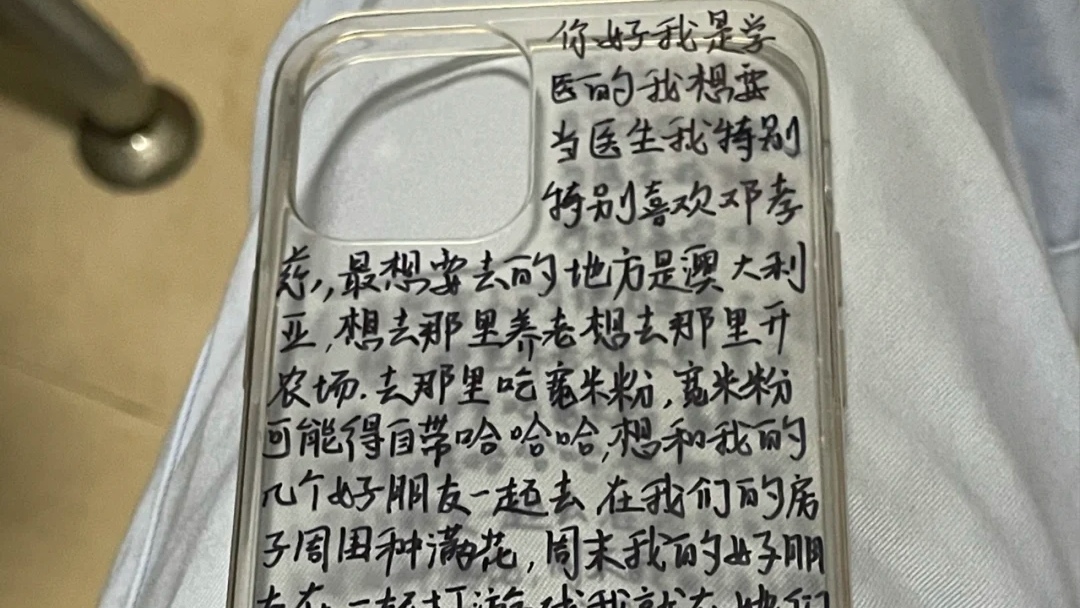 你好我是学
医的我想要
当医生我特别
特别喜欢邓孝
慈,最想要去的地方是澳大利
亚,想去那里养老想去那里开
农场.去那里吃宽米粉,宽米粉
可能得自带哈哈哈,想和我的
几个好朋友一起去,在我们的房
子周围种满花,周末我的好朋
友在一起打游戏我就在她们